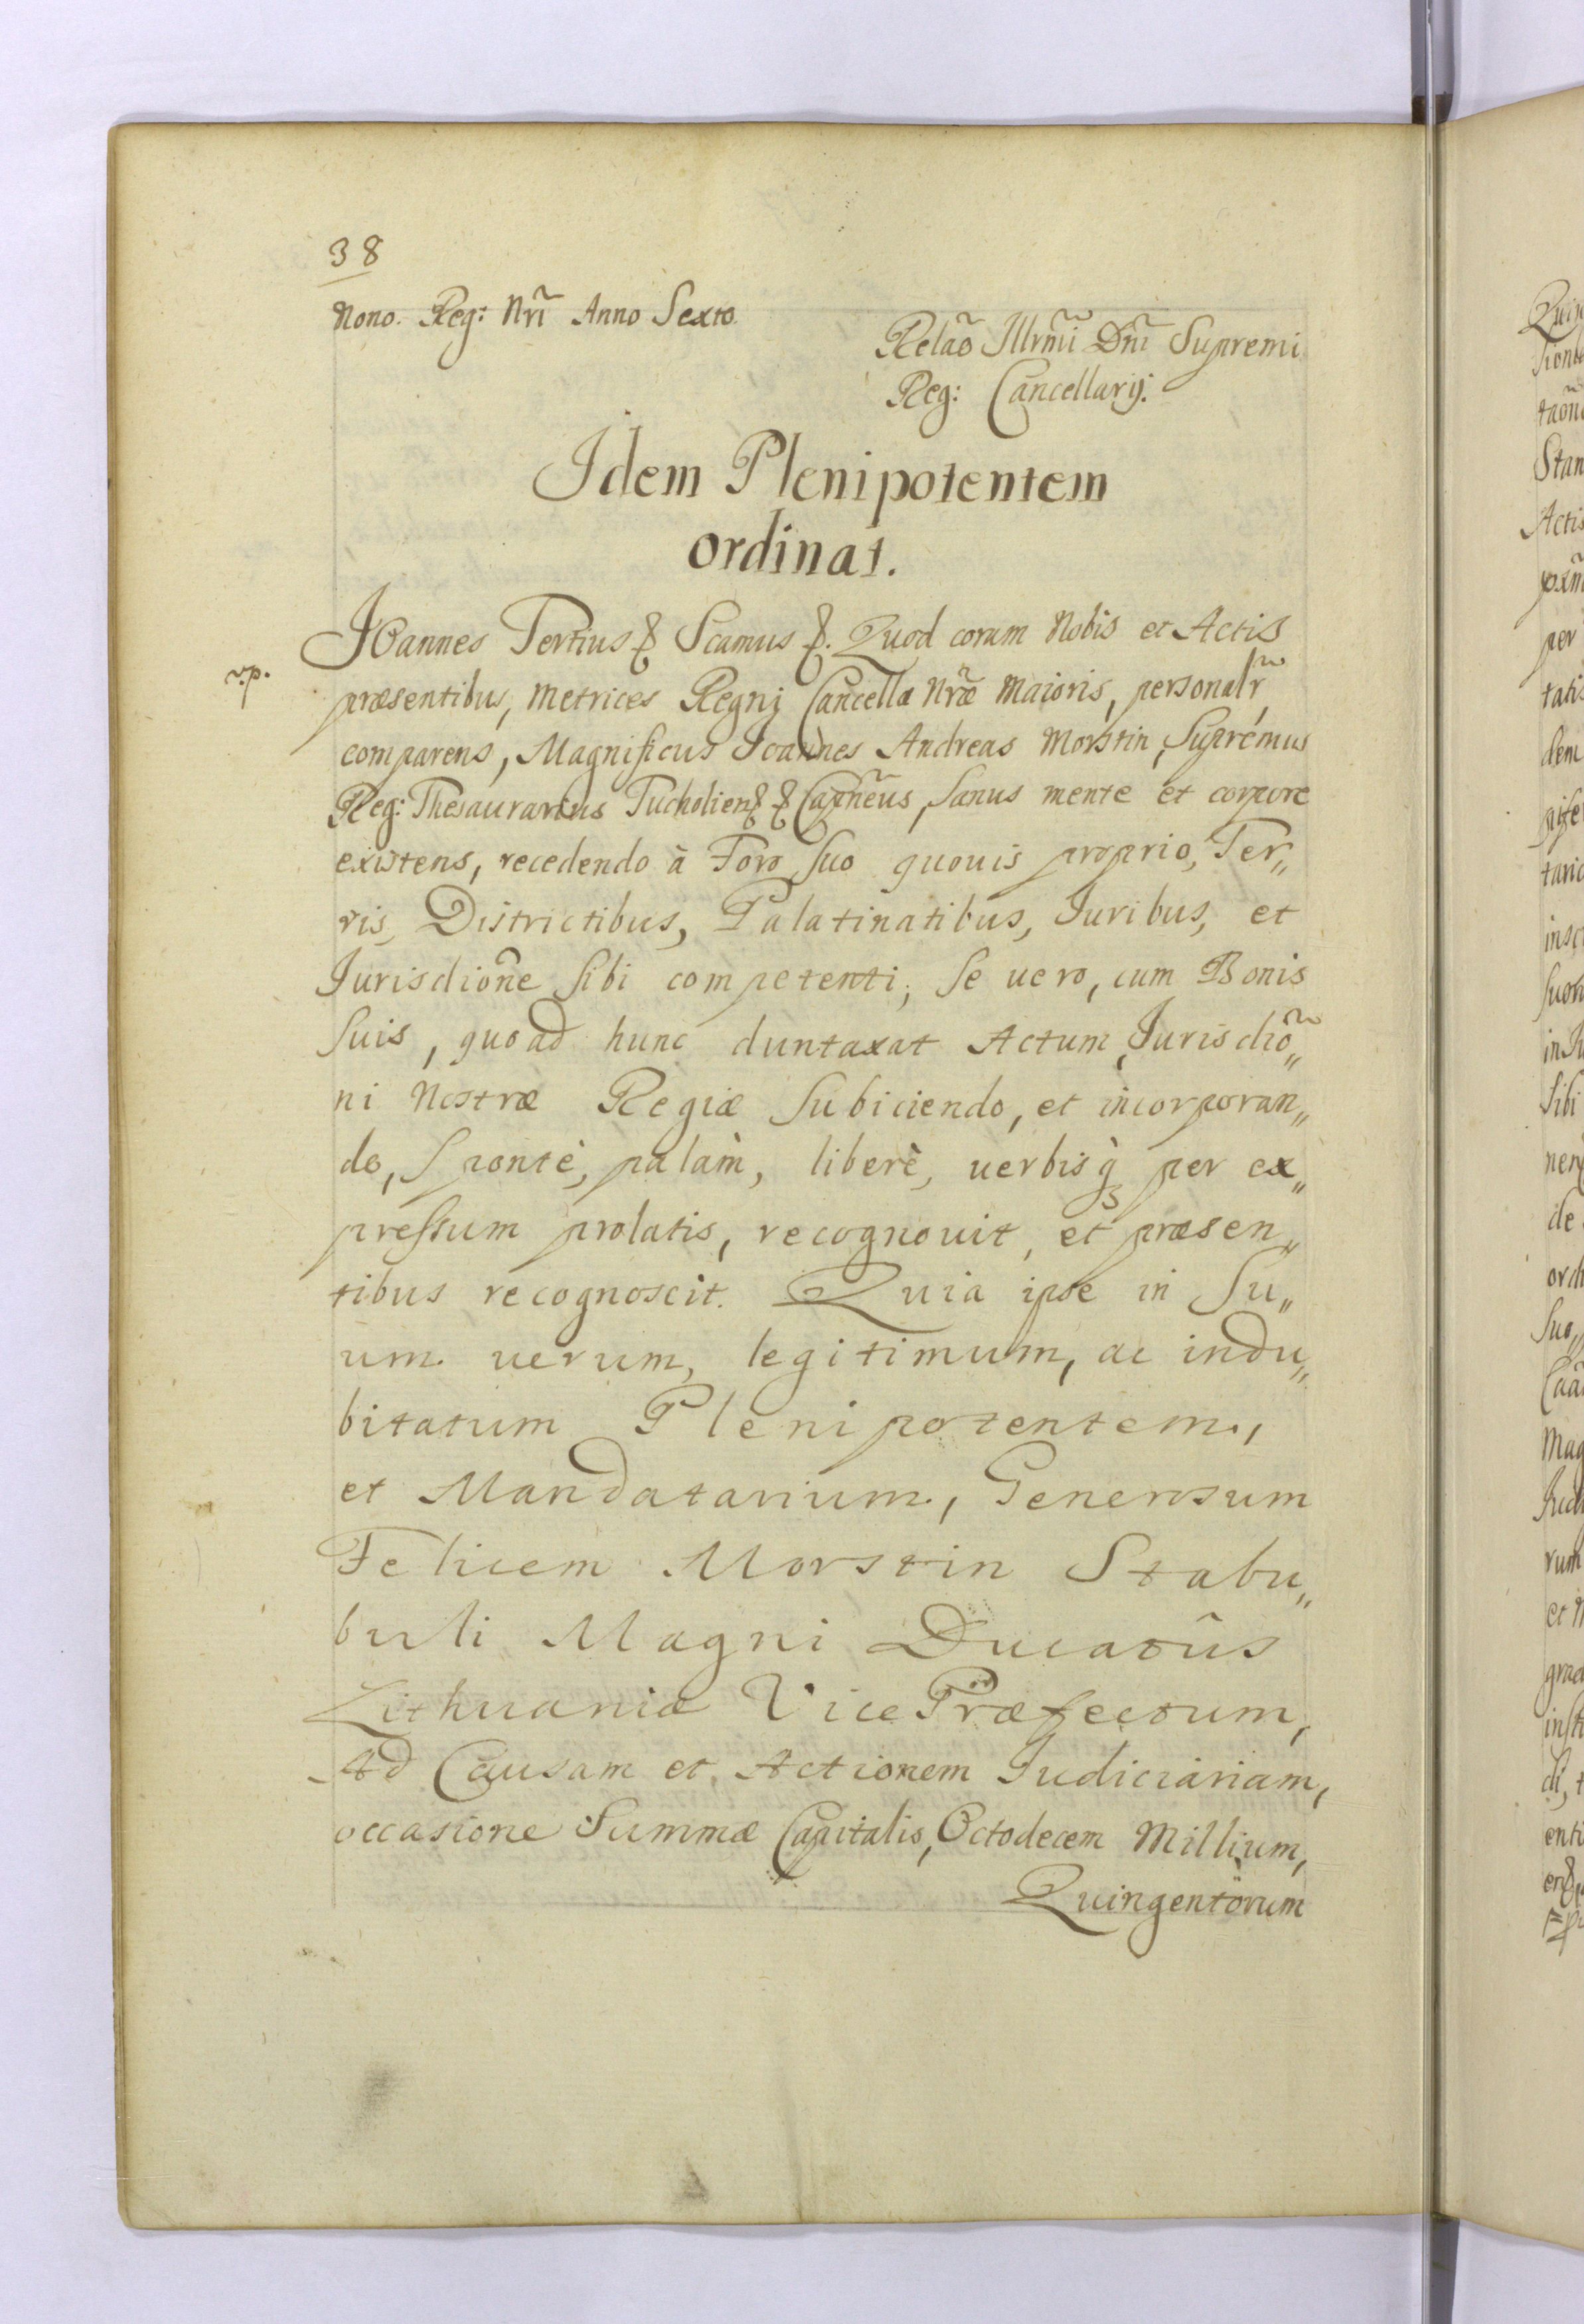 38
Nono. Reg: Nrĩ Anno Sexto.
Relaõ Illrmĩ Dnĩ Supremi
Reg: Cancellarij.
Idem Plenipotentem
ordinat.
Joannes Tertius & Scamus &. Quod coram Nobis et Actis
v.p.
præsentibus, Metrices Regnj Cancellæ Nræ̃ Maioris, personalr̃
comparens, Magnificus Joannes Andreas Morstin, Supremus
Reg: Thesaurarius Tucholien& & Capñeus, Sanus mente et corpore
existens, recedendo à Foro Suo quouis proprio, Ter„
ris, Districtibus, Palatinatibus, Juribus, et
Jurisdioñe Sibi competenti; Se uero, cum Bonis
Suis, quoad hunc duntaxat Actum, Jurisdiõ„
ni Nostræ Regiæ Subiciendo, et incorporan„
do, Spontè, palàm, liberè, uerbisq̀ per ex„
pressum prolatis, recognouit, et præsen„
tibus recognoscit. Quia ipse in Su„
um uerum, legitimum, ac indu„
bitatum Plenipotentem,
et Mandatarium, Generosum
Felicem Morstin Stabu„
buli Magni Ducatûs
Lithuaniæ VicePræfectum,
Ad Causam et Actionem Judiciariam,
occasione Summæ Capitalis, Octodecem Millium,
Quingentorum